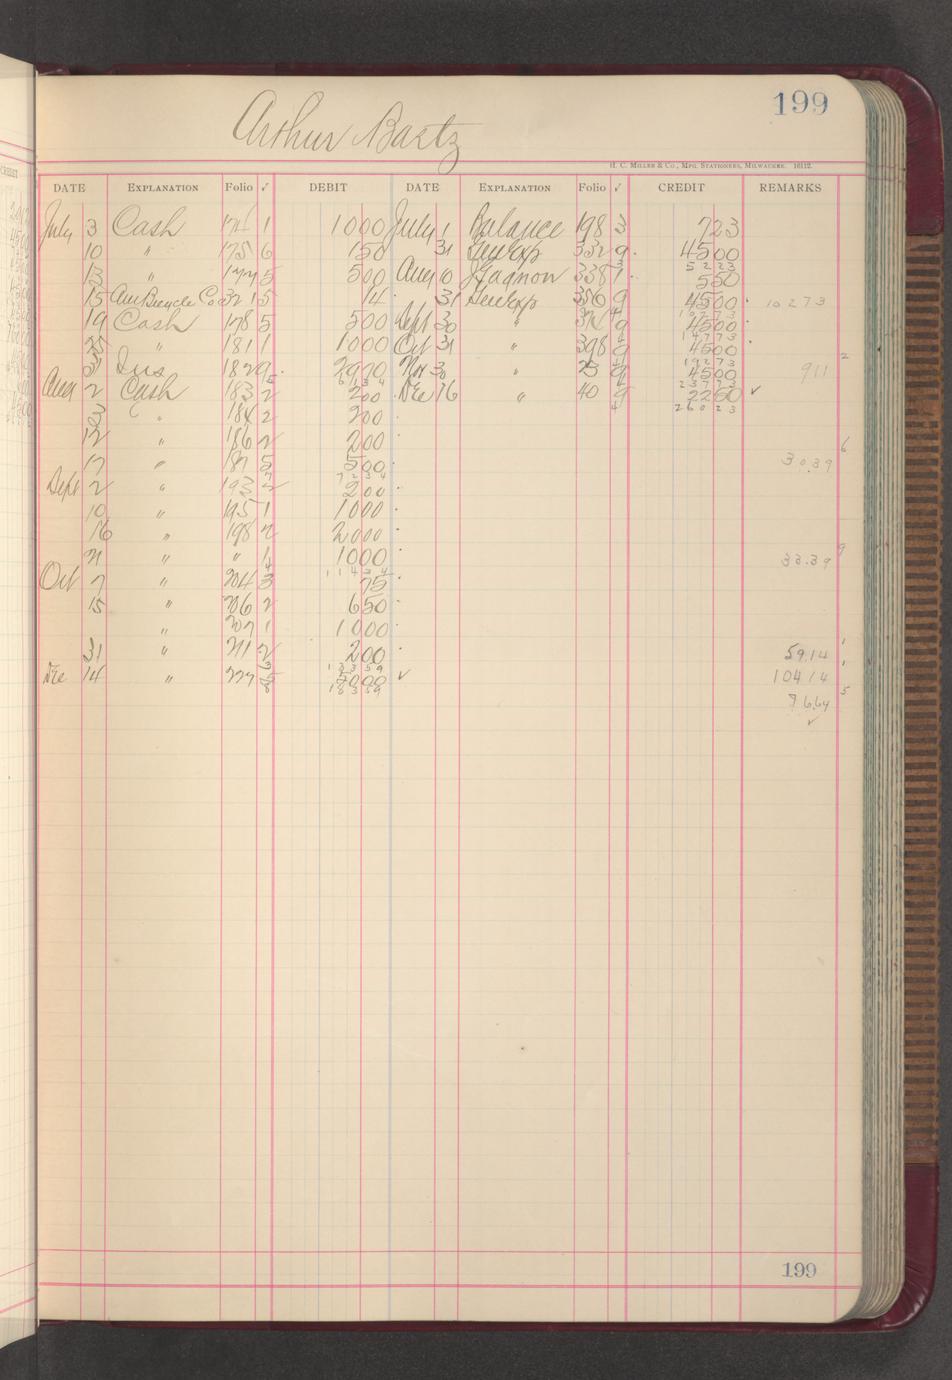 199
Arthur Bartz
H. C. Miller & Co., Mfg. Stationers, Milwaukee. 16112.
DATE EXPLANATION Folio ✓ DEBIT DATE EXPLANATION Folio ✓ CREDIT REMARKS
July 3 Cash 174 1 1000 July 1 Balance 198 3 723
10 " 175 6 150 31 Gen Exp 332 9 4500
5223
13 " 177 5 500 Aug 10 J Gagnon 338 1 550
15 Am Bicycle Co 321 5 14 31 Gen Exp 350 9 4500 10273
10273
19 Cash 178 5 500 Sept 30 " 374 9 4500
14773
25 " 181 1 1000 Oct 31 " 398 9 4500
19273
31 Ins 182 9 2970 Nov 30 " 23 9 4500 911 2
6134 23773
Aug 2 Cash 183 2 200 Dec 16 " 40 9 2250 ✓
3 " 184 2 200 26023
12 " 186 2 200 6
17 " 187 5 500 3039
7234
Sept 2 " 193 2 200
10 " 195 1 1000
16 " 198 2 2000
21 " " 1 1000 3339 9
11434
Oct 7 " 204 3 75
15 " 206 2 650
" 207 1 1000
31 " 211 2 200 5914 1
13359
Dec 14 " 227 5 5000 ✓ 10414 1
18359
7664 5
✓
199